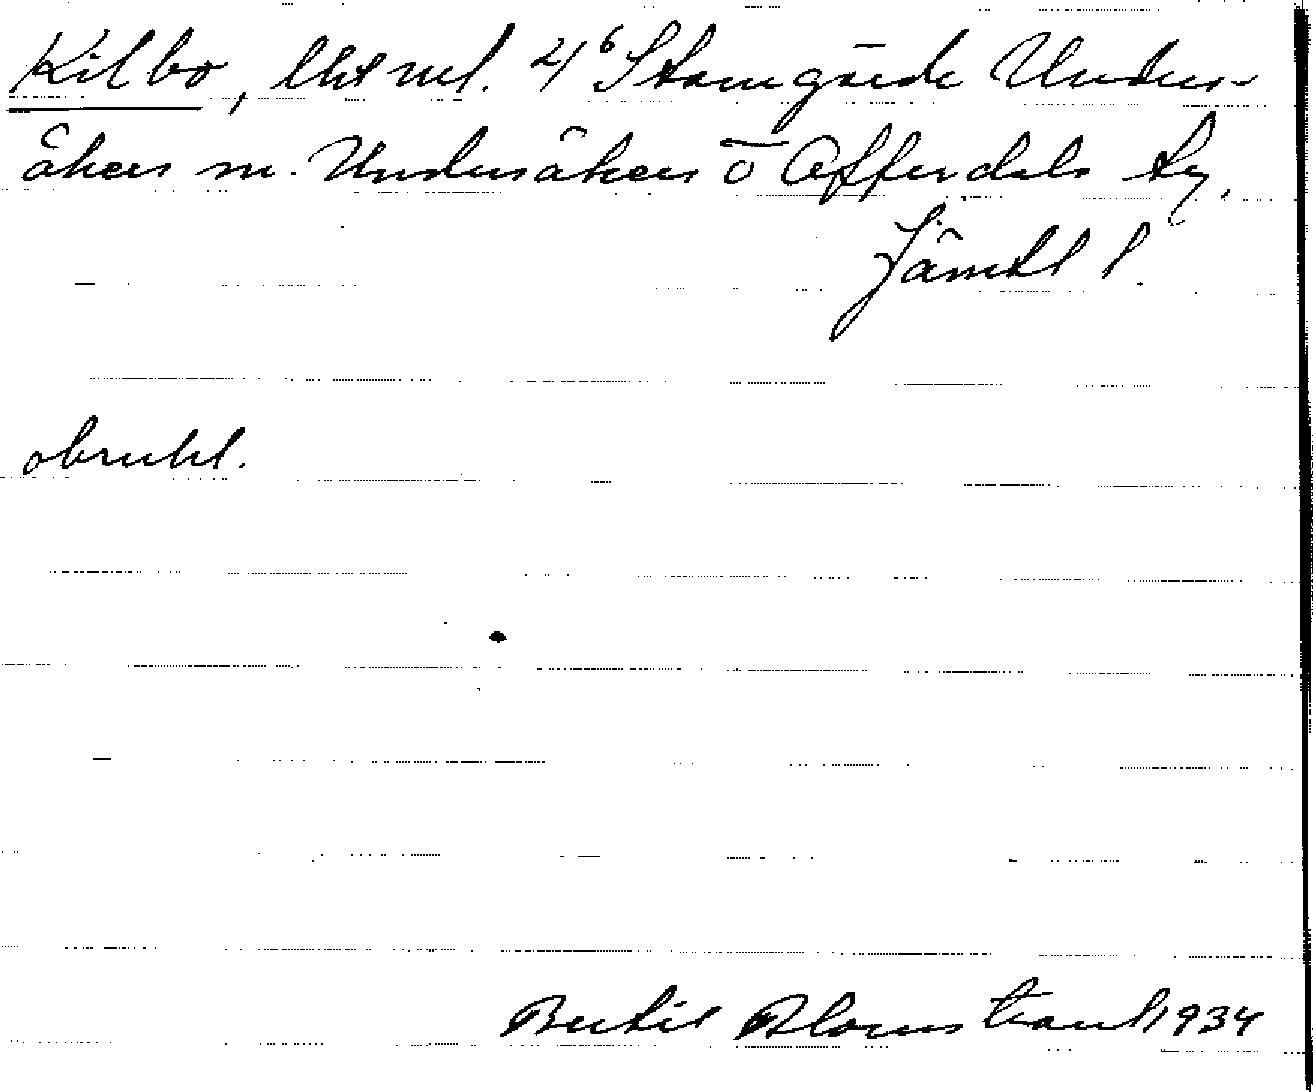 Kilbo, lht nr 1. 4⁶ Stamgärde Unders-
åkers sn. Undersåkers o Offerdals tg,
Jämtl l.
obrukl.
Bertil Blomstrand 1934